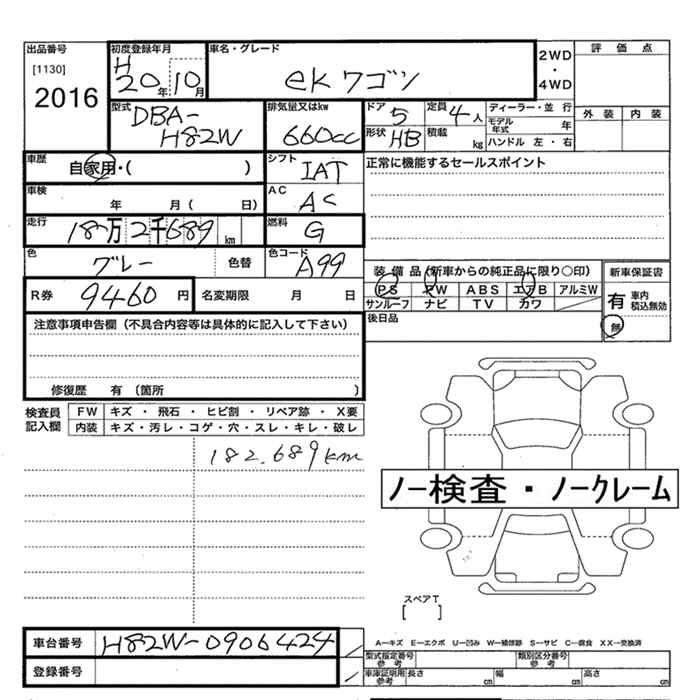 出品番号
[1130]
2016
初度登録年月
H
20年10月
車名・グレード
ek ワゴン
2WD
・
4WD
評価点
外装 内装
型式
DBA-
H82W
排気量又はkw
660cc
ドア 5
定員 4人
形状 HB
積載 kg
ディーラー・並 行
モデル年式 年
ハンドル 左・右
車歴
自家用・( )
シフト
IAT
正常に機能するセールスポイント
車検
年 月( 日)
AC
AC
走行
18万2千689km
燃料
G
色
グレー
色替
色コード
A99
装備品(新車からの純正品に限り○印)
PS PW ABS エアB アルミW
サンルーフ ナビ TV カワ
新車保証書
有 車内積込無効
無
R券 9460円
名変期限 月 日
後日品
注意事項申告欄(不具合内容等は具体的に記入して下さい)
修復歴 有 (箇所 )
検査員
記入欄
FW キズ ・ 飛石 ・ ヒビ割 ・ リペア跡 ・ X要
内装 キズ・汚レ・コゲ・穴・スレ・キレ・破レ
182.689km
ノー検査・ノークレーム
スペアT
[ ]
車台番号 H82W-0906424
登録番号
A―キズ E―エクボ U―凹み W―補修跡 S―サビ C―腐食 XX―交換済
型式指定番号
参考
類別区分番号
参考
車庫証明用
参考
長さ cm 幅 cm 高さ cm